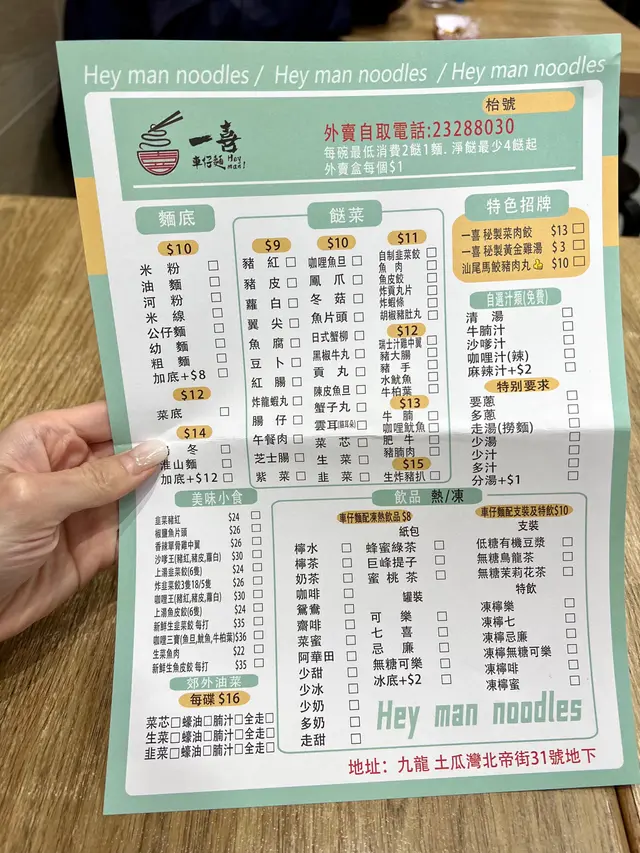 Hey man noodles / Hey man noodles / Hey man noodles
枱號
一喜
車仔麵 Hey man!
外賣自取電話:23288030
每碗最低消費2餸1麵. 淨餸最少4餸起
外賣盒每個$1
麵底
$10
米粉
油麵
河粉
米線
公仔麵
幼麵
粗麵
加底+$8
$12
菜底
$14
冬
淮山麵
加底+$12
餸菜
$9
豬紅
豬皮
蘿白
翼尖
魚腐
豆卜
紅腸
炸龍蝦丸
腸仔
午餐肉
芝士腸
紫菜
$10
咖哩魚旦
鳳爪
冬菇
魚片頭
日式蟹柳
黑椒牛丸
貢丸
陳皮魚旦
蟹子丸
雲耳
菜芯
生菜
韭菜
$11
自制韭菜餃
魚肉
魚皮餃
炸貢丸片
炸蝦條
胡椒豬肚丸
$12
瑞士汁雞中翼
豬大腸
豬手
水魷魚
牛柏葉
$13
牛腩
咖哩魷魚
肥牛
豬腩肉
$15
生炸豬扒
特色招牌
一喜 秘製菜肉餃 $13
一喜 秘製黃金雞湯 $3
汕尾馬鮫豬肉丸👍 $10
自選汁類(免費)
清湯
牛腩汁
沙嗲汁
咖哩汁(辣)
麻辣汁+$2
特別要求
要蔥
多蔥
走湯(撈麵)
少湯
少汁
多汁
分湯+$1
美味小食
韭菜豬紅 $24
椒鹽魚片頭 $26
香辣單骨雞中翼 $26
沙嗲王(豬紅,豬皮,蘿白) $30
上湯韭菜餃(6隻) $24
炸韭菜餃3隻18/5隻 $26
咖哩王(豬紅,豬皮,蘿白) $30
上湯魚皮餃(6隻) $24
新鮮生韭菜餃 每打 $35
咖哩三寶(魚旦,魷魚,牛柏葉)$36
生菜魚肉 $22
新鮮生魚皮餃 每打 $35
郊外油菜
每碟 $16
菜芯□蠔油□腩汁□全走□
生菜□蠔油□腩汁□全走□
韭菜□蠔油□腩汁□全走□
飲品 熱/凍
車仔麵配凍熱飲品 $8
檸水
檸茶
奶茶
咖啡
鴛鴦
齋啡
菜蜜
阿華田
少甜
少冰
少奶
多奶
走甜
紙包
蜂蜜綠茶
巨峰提子
蜜桃茶
罐裝
可樂
七喜
忌廉
無糖可樂
冰底+$2
車仔麵配支裝及特飲$10
支裝
低糖有機豆漿
無糖烏龍茶
無糖茉莉花茶
特飲
凍檸樂
凍檸七
凍檸忌廉
凍檸無糖可樂
凍檸啡
凍檸蜜
Hey man noodles
地址：九龍 土瓜灣北帝街31號地下